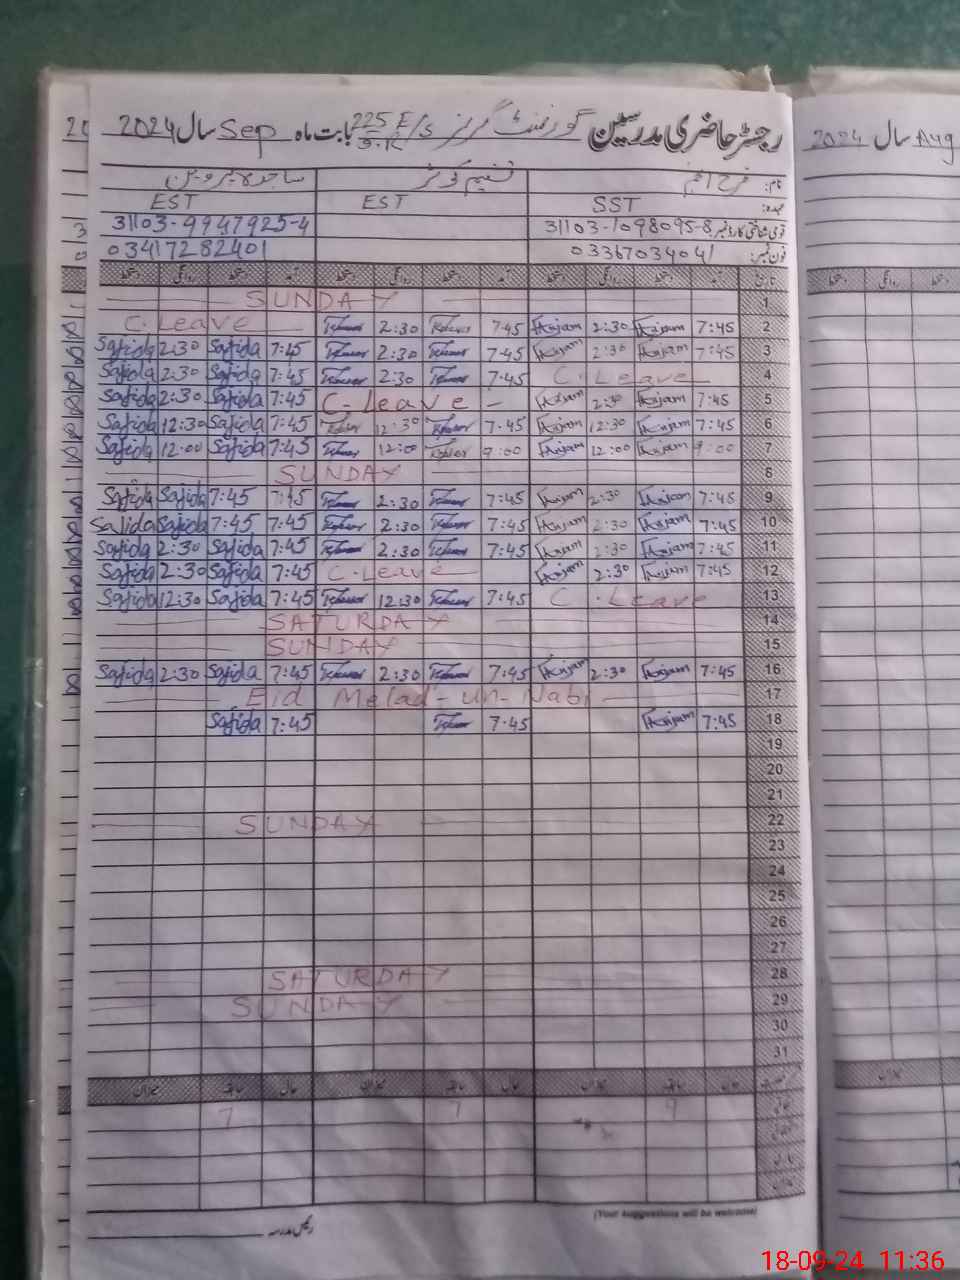 رجسٹر حاضری مدرسین گورنمنٹ گرلز E/S 225 9-R بابت ماہ Sep سال 2024
نام: فرح انجم تسنیم کوثر ساجدہ پروین
عہدہ: SST EST EST
قومی شناختی کارڈ نمبر 31103-1098095-8 31103-9947925-4
فون نمبر: 03367034041 03417282401
تاریخ آمد دستخط روانگی دستخط آمد دستخط روانگی دستخط آمد دستخط روانگی دستخط
SUNDAY 1
C.Leave 2:30 7:45 Anjam 2:30 Anjam 7:45 2
Sajida 2:30 Sajida 7:45 2:30 7:45 Anjam 2:30 Anjam 7:45 3
Sajida 2:30 Sajida 7:45 2:30 7:45 C.Leave 4
Sajida 2:30 Sajida 7:45 C-Leave - Anjam 2:30 Anjam 7:45 5
Sajida 12:30 Sajida 7:45 12:30 7:45 Anjam 12:30 Anjam 7:45 6
Sajida 12:00 Sajida 7:45 12:00 9:00 Anjam 12:00 Anjam 9:00 7
SUNDAY 8
Sajida Sajida 7:45 7:45 2:30 7:45 Anjam 2:30 Anjam 7:45 9
Sajida Sajida 7:45 7:45 2:30 7:45 Anjam 2:30 Anjam 7:45 10
Sajida 2:30 Sajida 7:45 2:30 7:45 Anjam 2:30 Anjam 7:45 11
Sajida 2:30 Sajida 7:45 C.Leave Anjam 2:30 Anjam 7:45 12
Sajida 12:30 Sajida 7:45 12:30 7:45 C.Leave 13
SATURDAY 14
SUNDAY 15
Sajida 2:30 Sajida 7:45 2:30 7:45 Anjam 2:30 Anjam 7:45 16
Eid Melad-un-Nabi 17
Sajida 7:45 7:45 Anjam 7:45 18
19
20
21
SUNDAY 22
23
24
25
26
27
SATURDAY 28
SUNDAY 29
30
31
حال سابقہ میزان حال سابقہ میزان حال سابقہ میزان
7 7 9
رئیس مدرسہ
(Your suggestions will be welcome)
2024 سال Aug
18-09-24 11:36